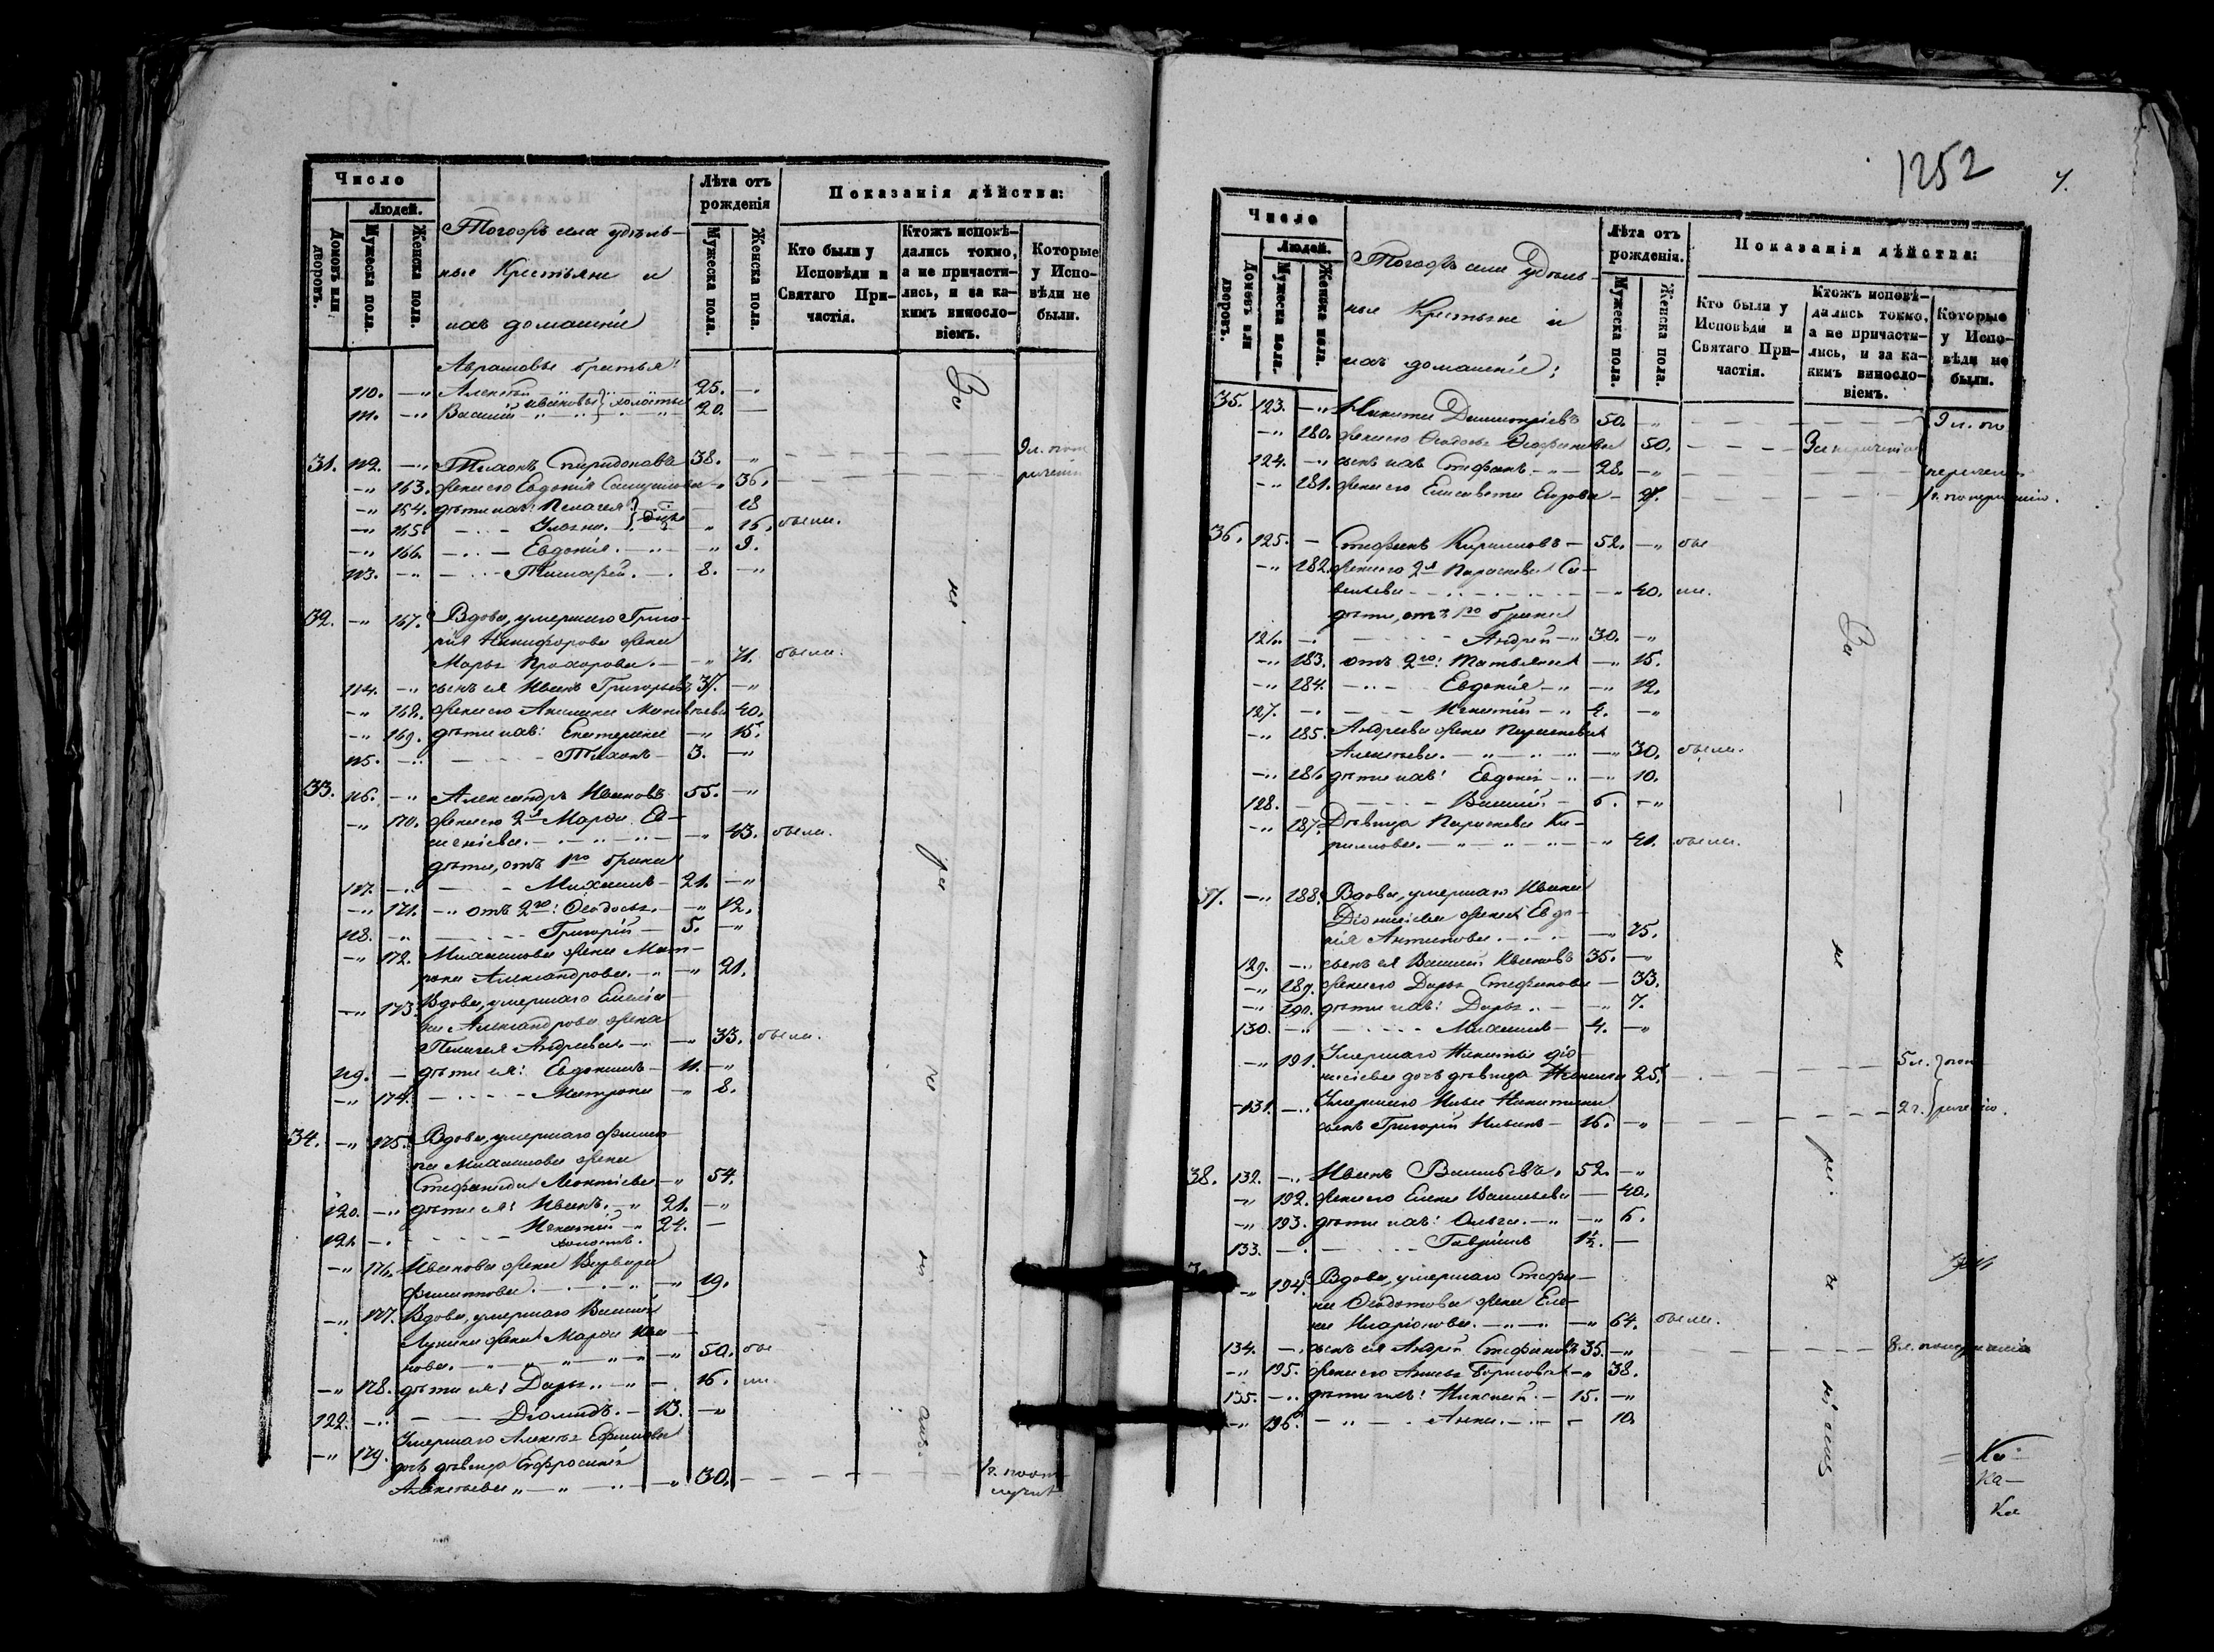 Число
Людей.
Домовъ или дворовъ.
Мужеска пола.
Женска пола.
Тогожъ села удѣль-
ные Крестьяне и
ихъ домашніе
Лѣта отъ рожденія
Мужеска пола.
Женска пола.
Показанія дѣйства:
Кто были у Исповѣди и Святаго При-частія.
Ктожъ исповѣ-дались токмо, а не причасти-лись, и за ка-кимъ винословіемъ.
Которые у Испо-вѣди не были.
братья:
110. Алексѣй 25.
111. Василій Ивановы холостые 20.
31. 112. Тихонъ Спиридоновъ 38.
163. жена его Евдокія 36.
164. дѣти ихъ: Пелагея 18
165. 16. были.
166. Евдокія. 9.
113. Тимофей. 8.
32. 167. Вдова, умершаго Григо-
рія Никифорова жена
Марья Прохорова. 71. были.
114. сынъ ея Иванъ Григорьевъ 37.
168. жена его Акилина 40.
169. дѣти ихъ: Екатерина 15.
115. Тихонъ 3.
33. 116. Александръ Ивановъ 55.
170. жена его 2я Марѳа Ев-
сеніева. 43. были.
дѣти, отъ 1го брака
117. Михаилъ 21.
171. отъ 2го: Ѳеодосья. 12.
118. Григорій 5.
172. Михаилова жена Мат-
рона Александрова. 21.
173. Вдова, умершаго
Александрова жена
Пелагея Андреева. 33. были.
119. дѣти ея: Евдокимъ 11.
174. Матрона 8.
34. 175. Вдова, умершаго Филип-
па Михаилова жена
Стефанида Леонтіева 54.
120. дѣти ея: Иванъ. 21.
121. Игнатій 24.
холостъ.
176. Иванова жена Варвара
Филиппова. 19.
177. Вдова, умершаго Василія
Лукина жена Марѳа Ива-
нова. 50. бы
178. дѣти ея: Дарья. 16. ли.
122. Діомидъ. 13.
179. Умершаго Алексѣя Ефимова
дочь дѣвица Евфросинія
Алексѣева 30.
1252
7.
Число
Людей.
Домовъ или дворовъ.
Мужеска пола.
Женска пола.
Тогожъ села Удѣль-
ные Крестьяне и
ихъ домашніе:
Лѣта отъ рожденія.
Мужеска пола.
Женска пола.
Показанія дѣйства:
Кто были у Исповѣди и Святаго При-частія.
Ктожъ исповѣ-дались токмо, а не причасти-лись, и за ка-кимъ винословіемъ.
Которые у Испо-вѣди не были.
35. 123. Никита Димитріевъ 50.
180. жена его Ѳеодосья 50.
124. сынъ ихъ Стефанъ 28.
181. жена его Елисавета Егорова 27.
36. 125. Стефанъ Кирилловъ 52. бы
182. жена его 2я Параскева Са-
вельева 40. ли.
дѣти, отъ 1го брака
126. Андрей 30.
183. отъ 2го: Татьяна 15.
184. Евдокія 12.
127. Игнатій 4.
185. Андреева жена Параскева
Алексѣева. 30. были.
186. дѣти ихъ: Евдокія 10.
128. Василій. 6.
187. Дѣвица Параскева Ки-
риллова. 41. были.
37. 188. Вдова, умершаго Ивана
Діонисіева жена Евдо-
кія Антипова. 75.
129. сынъ ея Василій Ивановъ 35.
189. жена его Дарья Стефанова 33.
190. дѣти ихъ: Дарья 7.
130. Михаилъ 4.
191. Умершаго Никиты Діо-
нисіева дочь дѣвица 25.
131. Умершаго Ильи Никитина
сынъ Григорій Ильинъ 16.
38. 132. Иванъ Васильевъ. 52.
192. жена его Елена Васильева 40.
193. дѣти ихъ: Ольга. 6.
133. Гавріилъ 1½.
194. Вдова, умершаго Стефа-
на Ѳеодотова жена Еле-
на Иларіонова. 64. были.
134. сынъ ея Андрей Стефановъ 35.
195. жена его Анисья Борисова 38.
135. дѣти ихъ: Николай. 15.
196. Анна. 10.